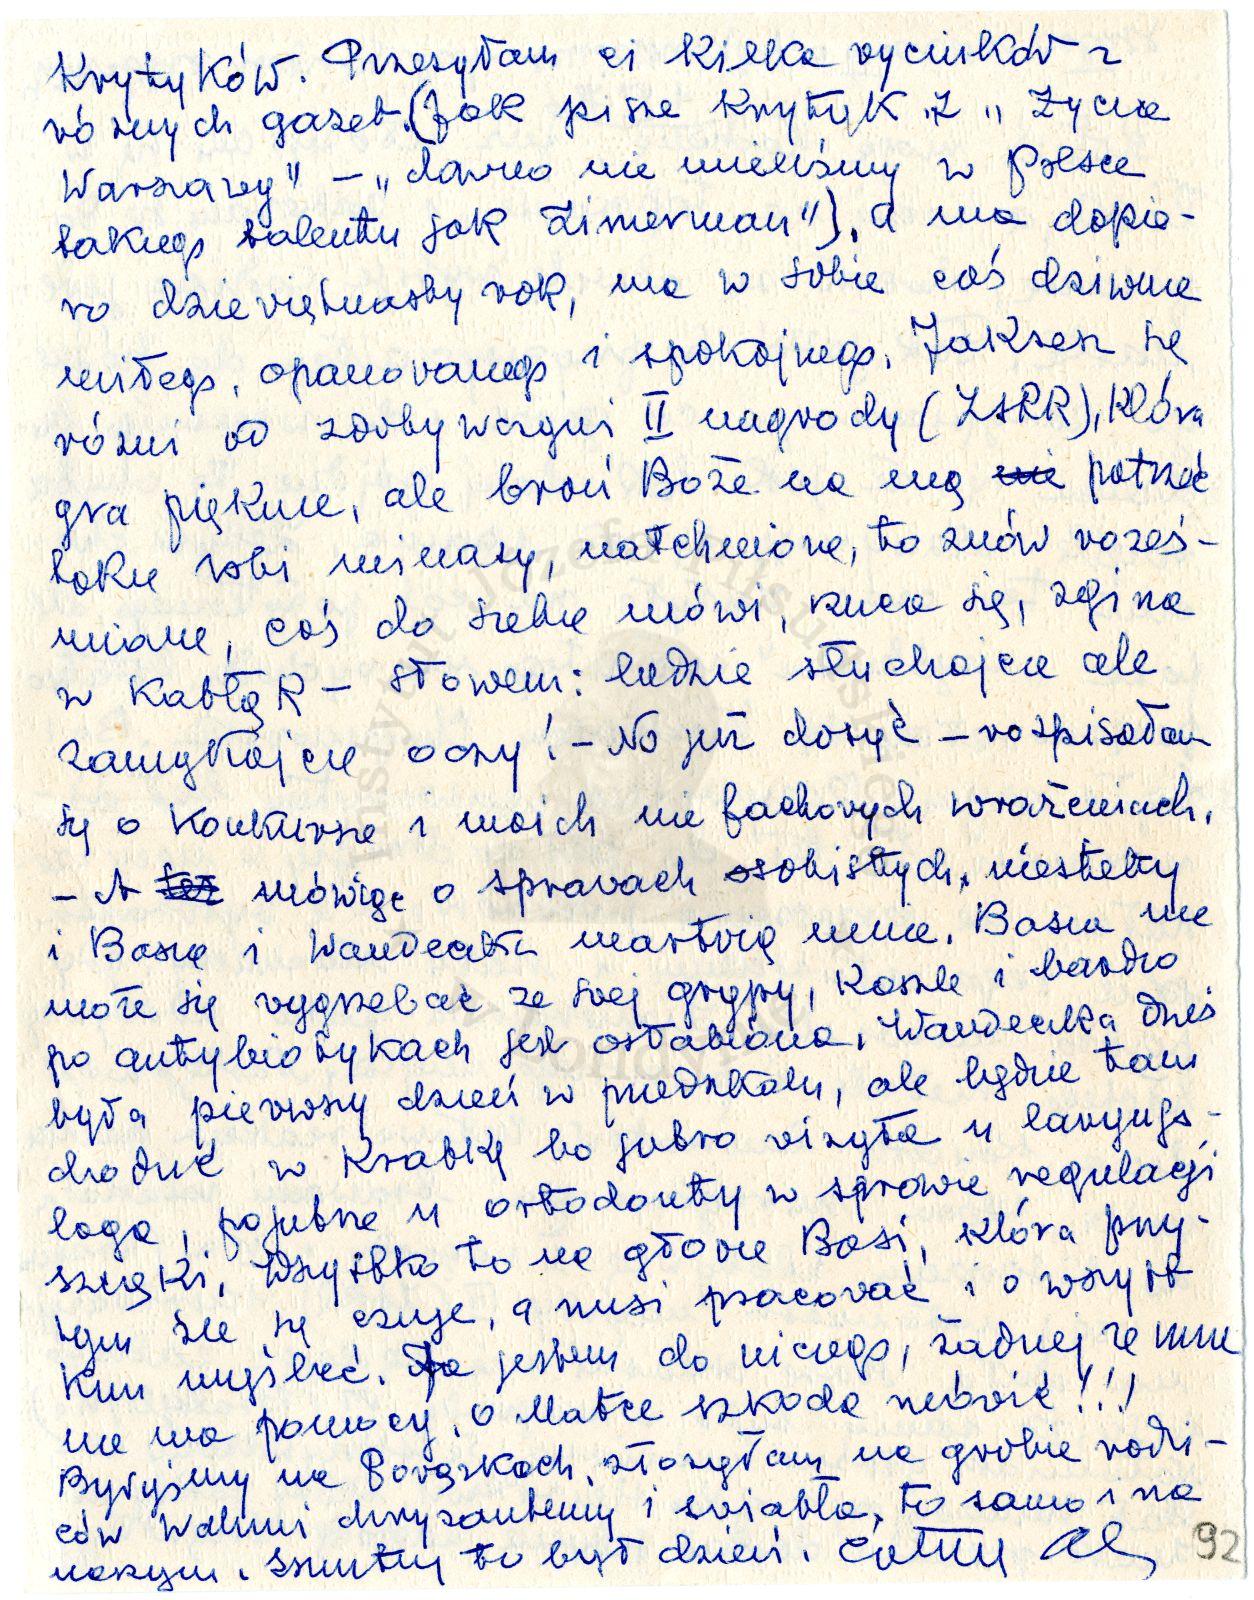 Krytyków. Przesyłam ci kilka wycinków z
różnych gazet. (Jak pisze Krytyk "z" "Życia
Warszawy" – "dawno nie mieliśmy w Polsce
takiego talentu jak Zimerman"), a ma dopie-
ro dziewiętnasty rok, ma w sobie coś dziwnie
miłego, opanowanego i spokojnego. Jakżesz się
różni od zdobywczyni II nagrody (ZSRR), która
gra pięknie, ale broń Boże na nią nie patrzeć
takie robi minasy, natchnione, to znów roześ-
miane, coś do siebie mówi, rzuca się, zgina
w Kabłąk – słowem: ludzie słuchajcie ale
zamykajcie oczy! – No już dosyć – rozpisałam
się o Konkursie i moich nie fachowych wrażeniach.
– A też mówiąc o sprawach osobistych, niestety
i Basia i Wandeczka martwią mnie. Basia nie
może się wygrzebać ze swej grypy, Kaszle i bardzo
po antybiotykach jest osłabiona, Wandeczka dziś
była pierwszy dzień w przedszkolu, ale będzie tam
chodzić w Kratkę bo jutro wizyta u laryngo-
loga, pojutrze u ortodonty w sprawie regulacji
szczęki. Wszystko to na głowie Basi, która przy-
tym źle się czuje, a musi pracować i o wszyst
kim myśleć. Ja jestem do niczego, żadnej ze mnie
nie ma pomocy, o Matce szkoda mówić!!!
Byłyśmy na Powązkach, złożyłam na grobie rodzi-
ców Waluni chryzantemy i światła, to samo i na
naszym. Smutny to był dzień. Całuję Al
92
Instytut Józefa Piłsudskiego
w Londynie